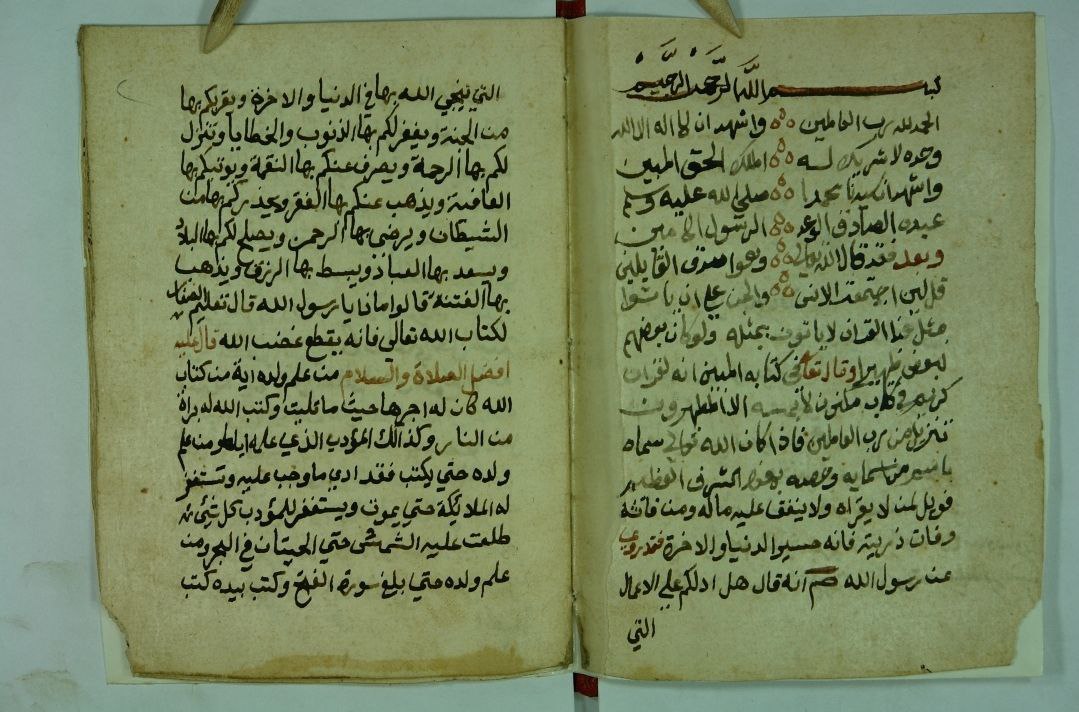 بسم الله الرحمن الرحيم
الحمد لله رب العالمين واشهد ان لا اله الا الله
وحده لا شريك لـه الملك الحق المبين
واشهد ان سيدنا محمدا صلي الله عليه وسلم
عبده الصادق الوعد الرسول الامين
وبعد فقد قال الله تعالي وهوا اصدق القايلين
قل لين اجتمعت الانس والجن علي ان ياتوا
بمثل هذا القران لا ياتون بمثله ولو كان بعضهم
لبعض ظهيرا وقال تعالي في كتابه المبين انه لقران
كريم في كتاب مكنون لا يمسه الا المطهرون
تنزيل من رب العالمين فاذا كان الله تعالي سماه
باسم من اسمايه وخصه بهذا الشرف العظيم
فويل لمن لا يقراه ولا ينفق عليه ماله ومن فاته
وفات ذريته فانه خسر الدنيا والاخرة فقد روي
عن رسول الله صم انه قال هل ادلكم علي الاعمال
التي
التي ينجي الله بها في الدنيا والاخرة ويقربكم بها
من الجنة ويغفر لكم بها الذنوب والخطايا وتنزل
لكم بها الرحمة ويصرف عنكم بها النقمة ويوتيكم بها
العافية ويذهب عنكم بها الفقر ويحذركم بها من
الشيطان ويرضى بها الرحمن ويصلح لكم بها البلاد
ويسعد بها العباد ويبسط بها الرزق ويذهب
بها الفتنة قالوا ماذا يا رسول الله قال تعليم اطفال
لكتاب الله تعالى فانه يقطع غضب الله قال عليه
افضل الصلاة والسلام من علم ولده اية من كتاب
الله كان له اجرها حيث ما تليت وكتب الله له براة
من النار وكذالك المؤدب الذي علمه ايا ومن علم
ولده حتي يكتب فقد ادي ما وجب عليه وتستغفر
له الملائكة حتي يموت ويستغفر للمؤدب كل شئ
طلعت عليه الشمس حتي الحيتان في البحر ومن
علم ولده حتي بلغ سورة الفتح وكتب بيده كتب